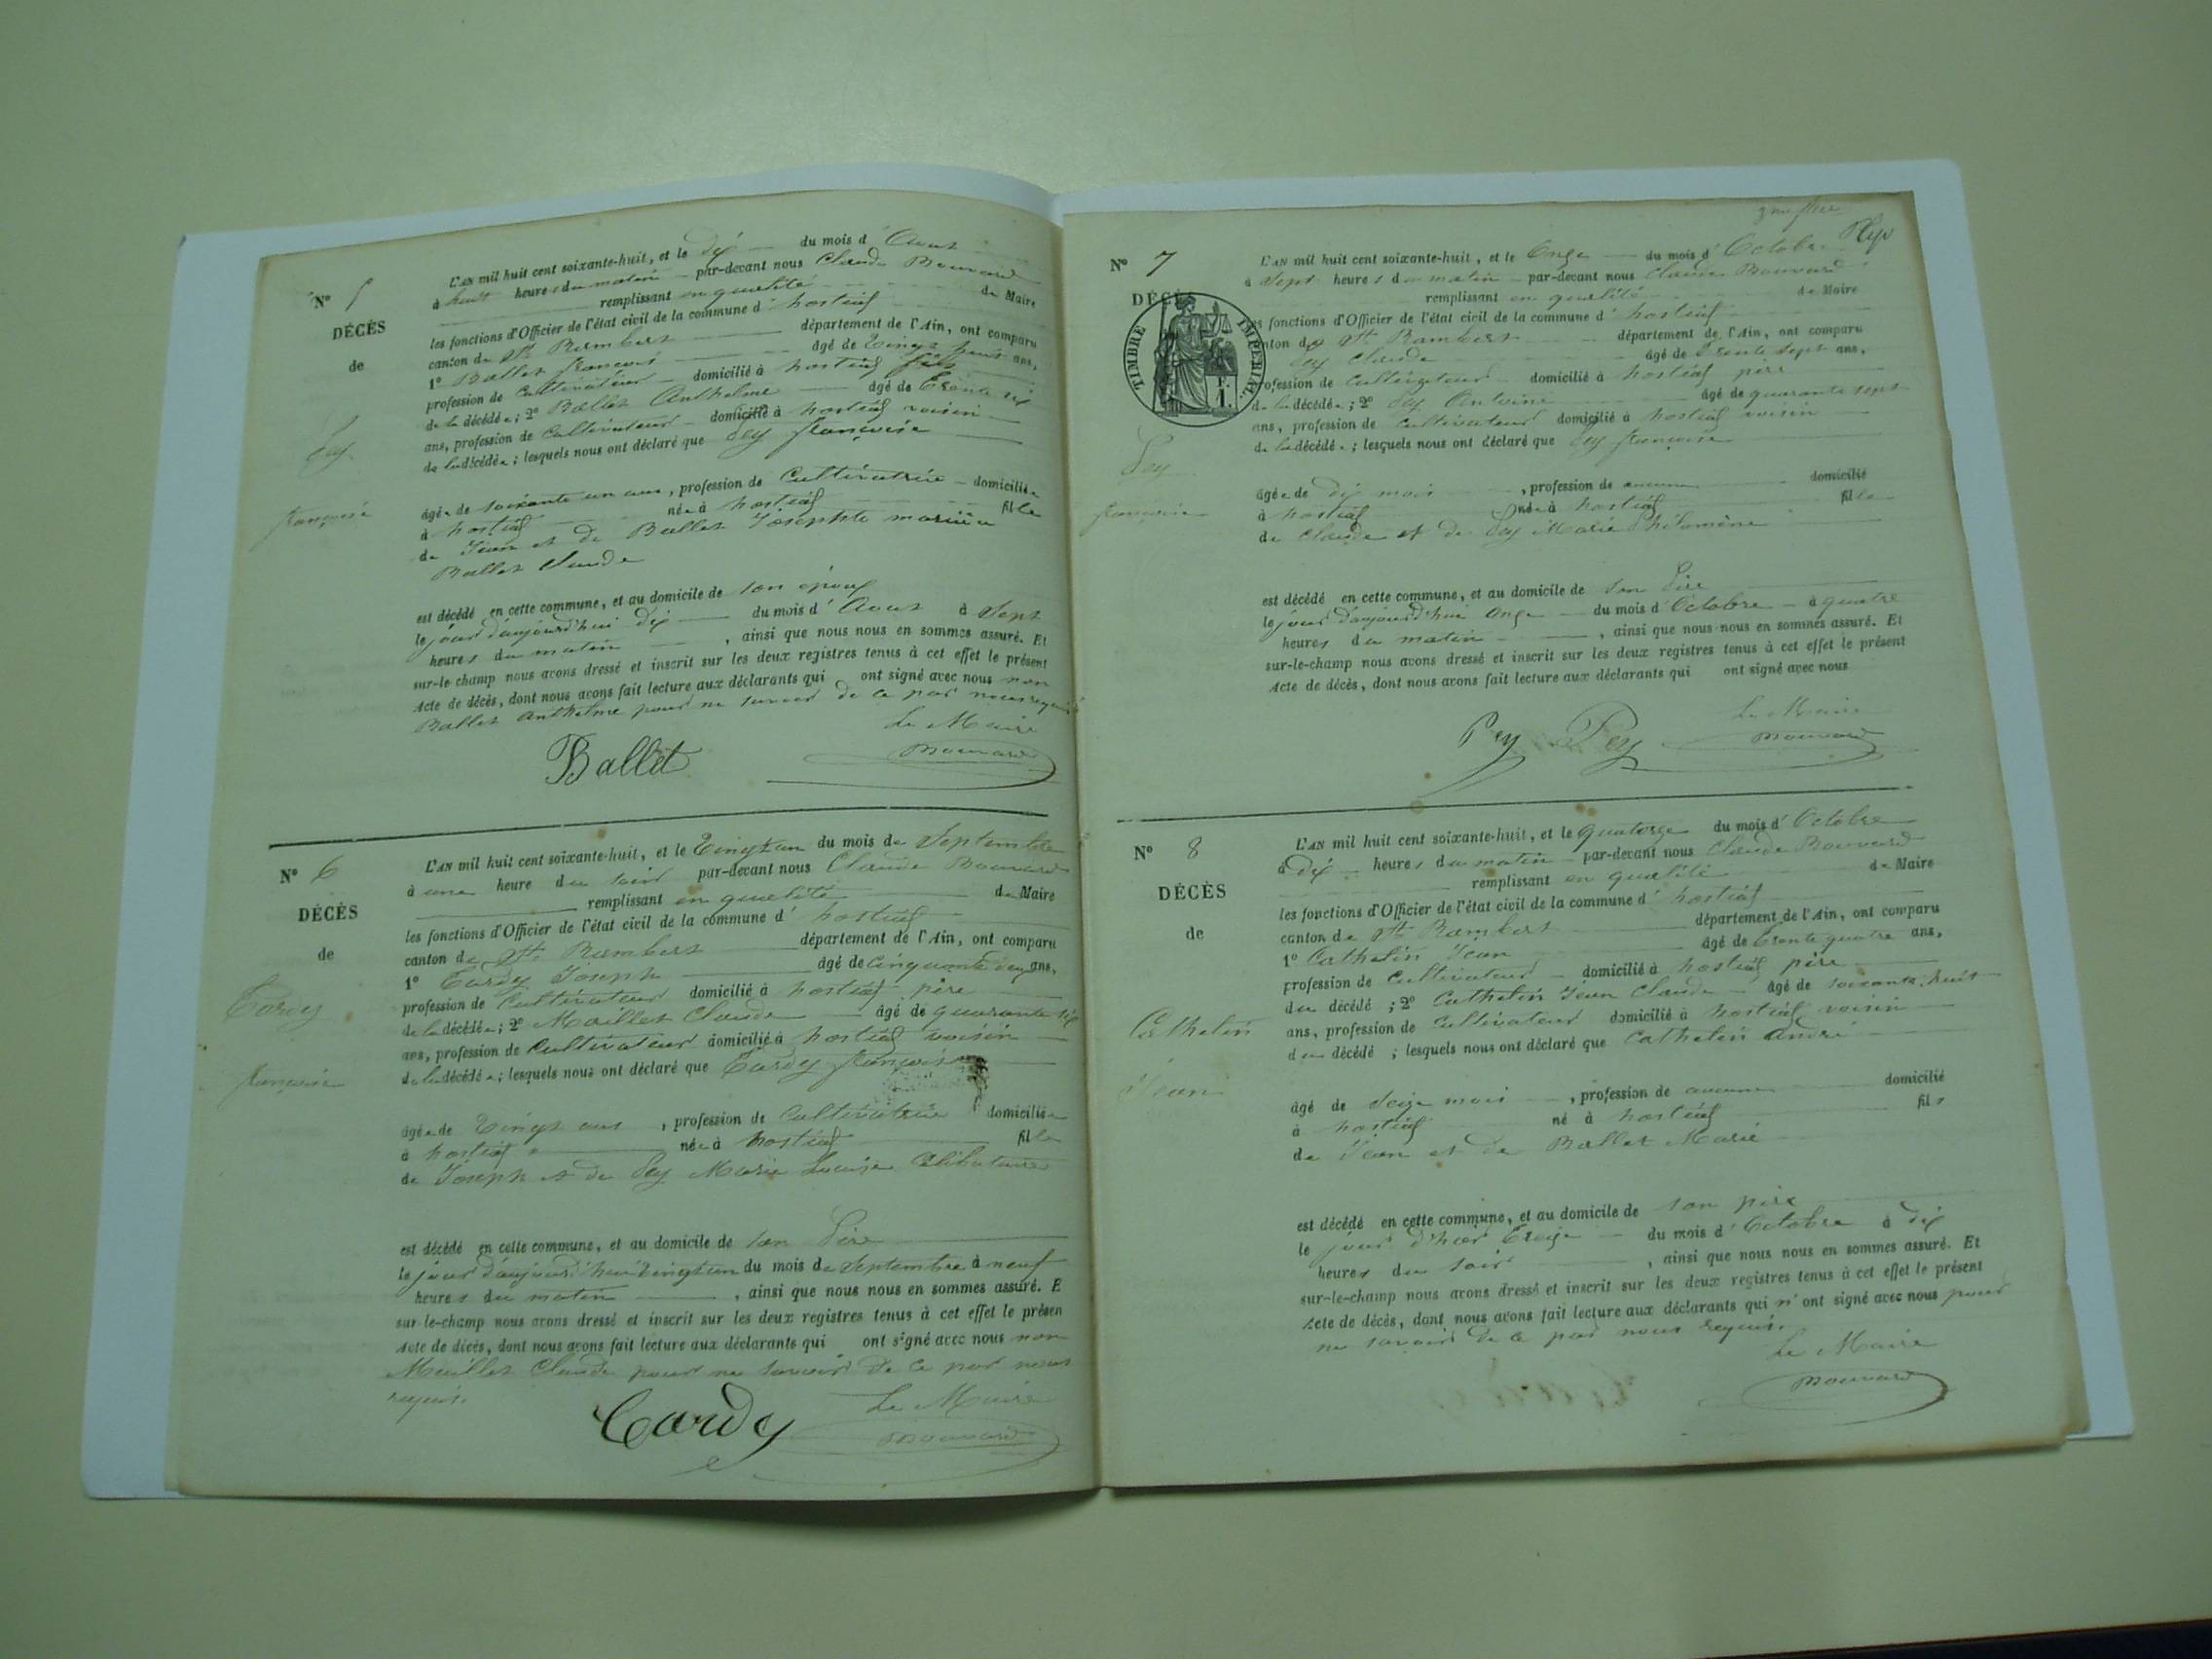 N° 5
DÉCÈS
de
Pey
françoise
L'AN mil huit cent soixante-huit, et le dix du mois d'Aout
à huit heures du matin par-devant nous Claude Bouvard
remplissant en qualité de Maire
les fonctions d'Officier de l'état civil de la commune d'hostiaz
canton de St Rambert département de l'Ain, ont comparu
1° Ballet françois âgé de Vingt huit ans,
profession de Cultivateur domicilié à hostiaz fils
de la décédée ; 2° Ballet Anthelme âgé de Trente six
ans, profession de Cultivateur domicilié à hostiaz voisin
de la décédée ; lesquels nous ont déclaré que Pey françoise
âgée de soixante un ans, profession de Cultivatrice domiciliée
à hostiaz née à hostiaz fille
de Jean et de Ballet Josephte mariée a
Ballet Claude
est décédé en cette commune, et au domicile de son époux
le jour d'aujourd'hui dix du mois d'Aout à Sept
heures du matin, ainsi que nous nous en sommes assuré. Et
sur-le champ nous avons dressé et inscrit sur les deux registres tenus à cet effet le présent
Acte de décès, dont nous avons fait lecture aux déclarants qui ont signé avec nous non
Ballet Anthelme pour ne savoir de ce par nous requis
Le Maire
Ballet Bouvard
N° 6
DÉCÈS
de
Tardy
françoise
L'AN mil huit cent soixante-huit, et le Vingt un du mois de Septembre
à une heure du soir par-devant nous Claude Bouvard
remplissant en qualité de Maire
les fonctions d'Officier de l'état civil de la commune d'hostiaz
canton de St Rambert département de l'Ain, ont comparu
1° Tardy Joseph âgé de Cinquante deux ans,
profession de Cultivateur domicilié à hostiaz père
de la décédée ; 2° Maillet Claude âgé de quarante six
ans, profession de Cultivateur domicilié à hostiaz voisin
de la décédée ; lesquels nous ont déclaré que Tardy françoise
âgée de Vingt ans, profession de Cultivatrice domiciliée
à hostiaz née à hostiaz fille
de Joseph et de Pey Marie Louise Célibataire
est décédé en cette commune, et au domicile de son Père
le jour d'aujourd'hui Vingt un du mois de Septembre à neuf
heures du matin, ainsi que nous nous en sommes assuré. E
sur-le-champ nous avons dressé et inscrit sur les deux registres tenus à cet effet le présen
Acte de décès, dont nous avons fait lecture aux déclarants qui ont signé avec nous non
Maillet Claude pour ne savoir de ce par nous
requis.
Le Maire
Tardy Bouvard
N° 7
DÉCÈS
TIMBRE IMPÉRIAL
1 F.
Pey
françoise
L'AN mil huit cent soixante-huit, et le Onze du mois d'Octobre
à Sept heures du matin par-devant nous Claude Bouvard
remplissant en qualité de Maire
les fonctions d'Officier de l'état civil de la commune d'hostiaz
canton de St Rambert département de l'Ain, ont comparu
Pey Claude âgé de Trente sept ans,
profession de Cultivateur domicilié à hostiaz père
de la décédée ; 2° Pey Antoine âgé de quarante sept
ans, profession de Cultivateur domicilié à hostiaz voisin
de la décédée ; lesquels nous ont déclaré que Pey françoise
âgée de dix mois, profession de aucune domicilié
à hostiaz née à hostiaz fille
de Claude et de Pey Marie Philomène
est décédé en cette commune, et au domicile de son Père
le jour d'aujourd'hui onze du mois d'Octobre à quatre
heures du matin, ainsi que nous nous en sommes assuré. Et
sur-le-champ nous avons dressé et inscrit sur les deux registres tenus à cet effet le présent
Acte de décès, dont nous avons fait lecture aux déclarants qui ont signé avec nous
Le Maire
Pey Pey Bouvard
N° 8
DÉCÈS
de
Cathelin
Jean
L'AN mil huit cent soixante-huit, et le quatorze du mois d'Octobre
à dix heures du matin par-devant nous Claude Bouvard
remplissant en qualité de Maire
les fonctions d'Officier de l'état civil de la commune d'hostiaz
canton de St Rambert département de l'Ain, ont comparu
1° Cathelin Jean âgé de Trente quatre ans,
profession de Cultivateur domicilié à hostiaz père
du décédé ; 2° Cathelin Jean Claude âgé de soixante huit
ans, profession de Cultivateur domicilié à hostiaz voisin
du décédé ; lesquels nous ont déclaré que Cathelin André
âgé de Seize mois, profession de aucune domicilié
à hostiaz né à hostiaz fils
de Jean et de Ballet Marie
est décédé en cette commune, et au domicile de son père
le jour d'hier Treize du mois d'Octobre à dix
heures du soir, ainsi que nous nous en sommes assuré. Et
sur-le-champ nous avons dressé et inscrit sur les deux registres tenus à cet effet le présent
Acte de décès, dont nous avons fait lecture aux déclarants qui n'ont signé avec nous pour
ne savoir de ce par nous requis.
Le Maire
Bouvard